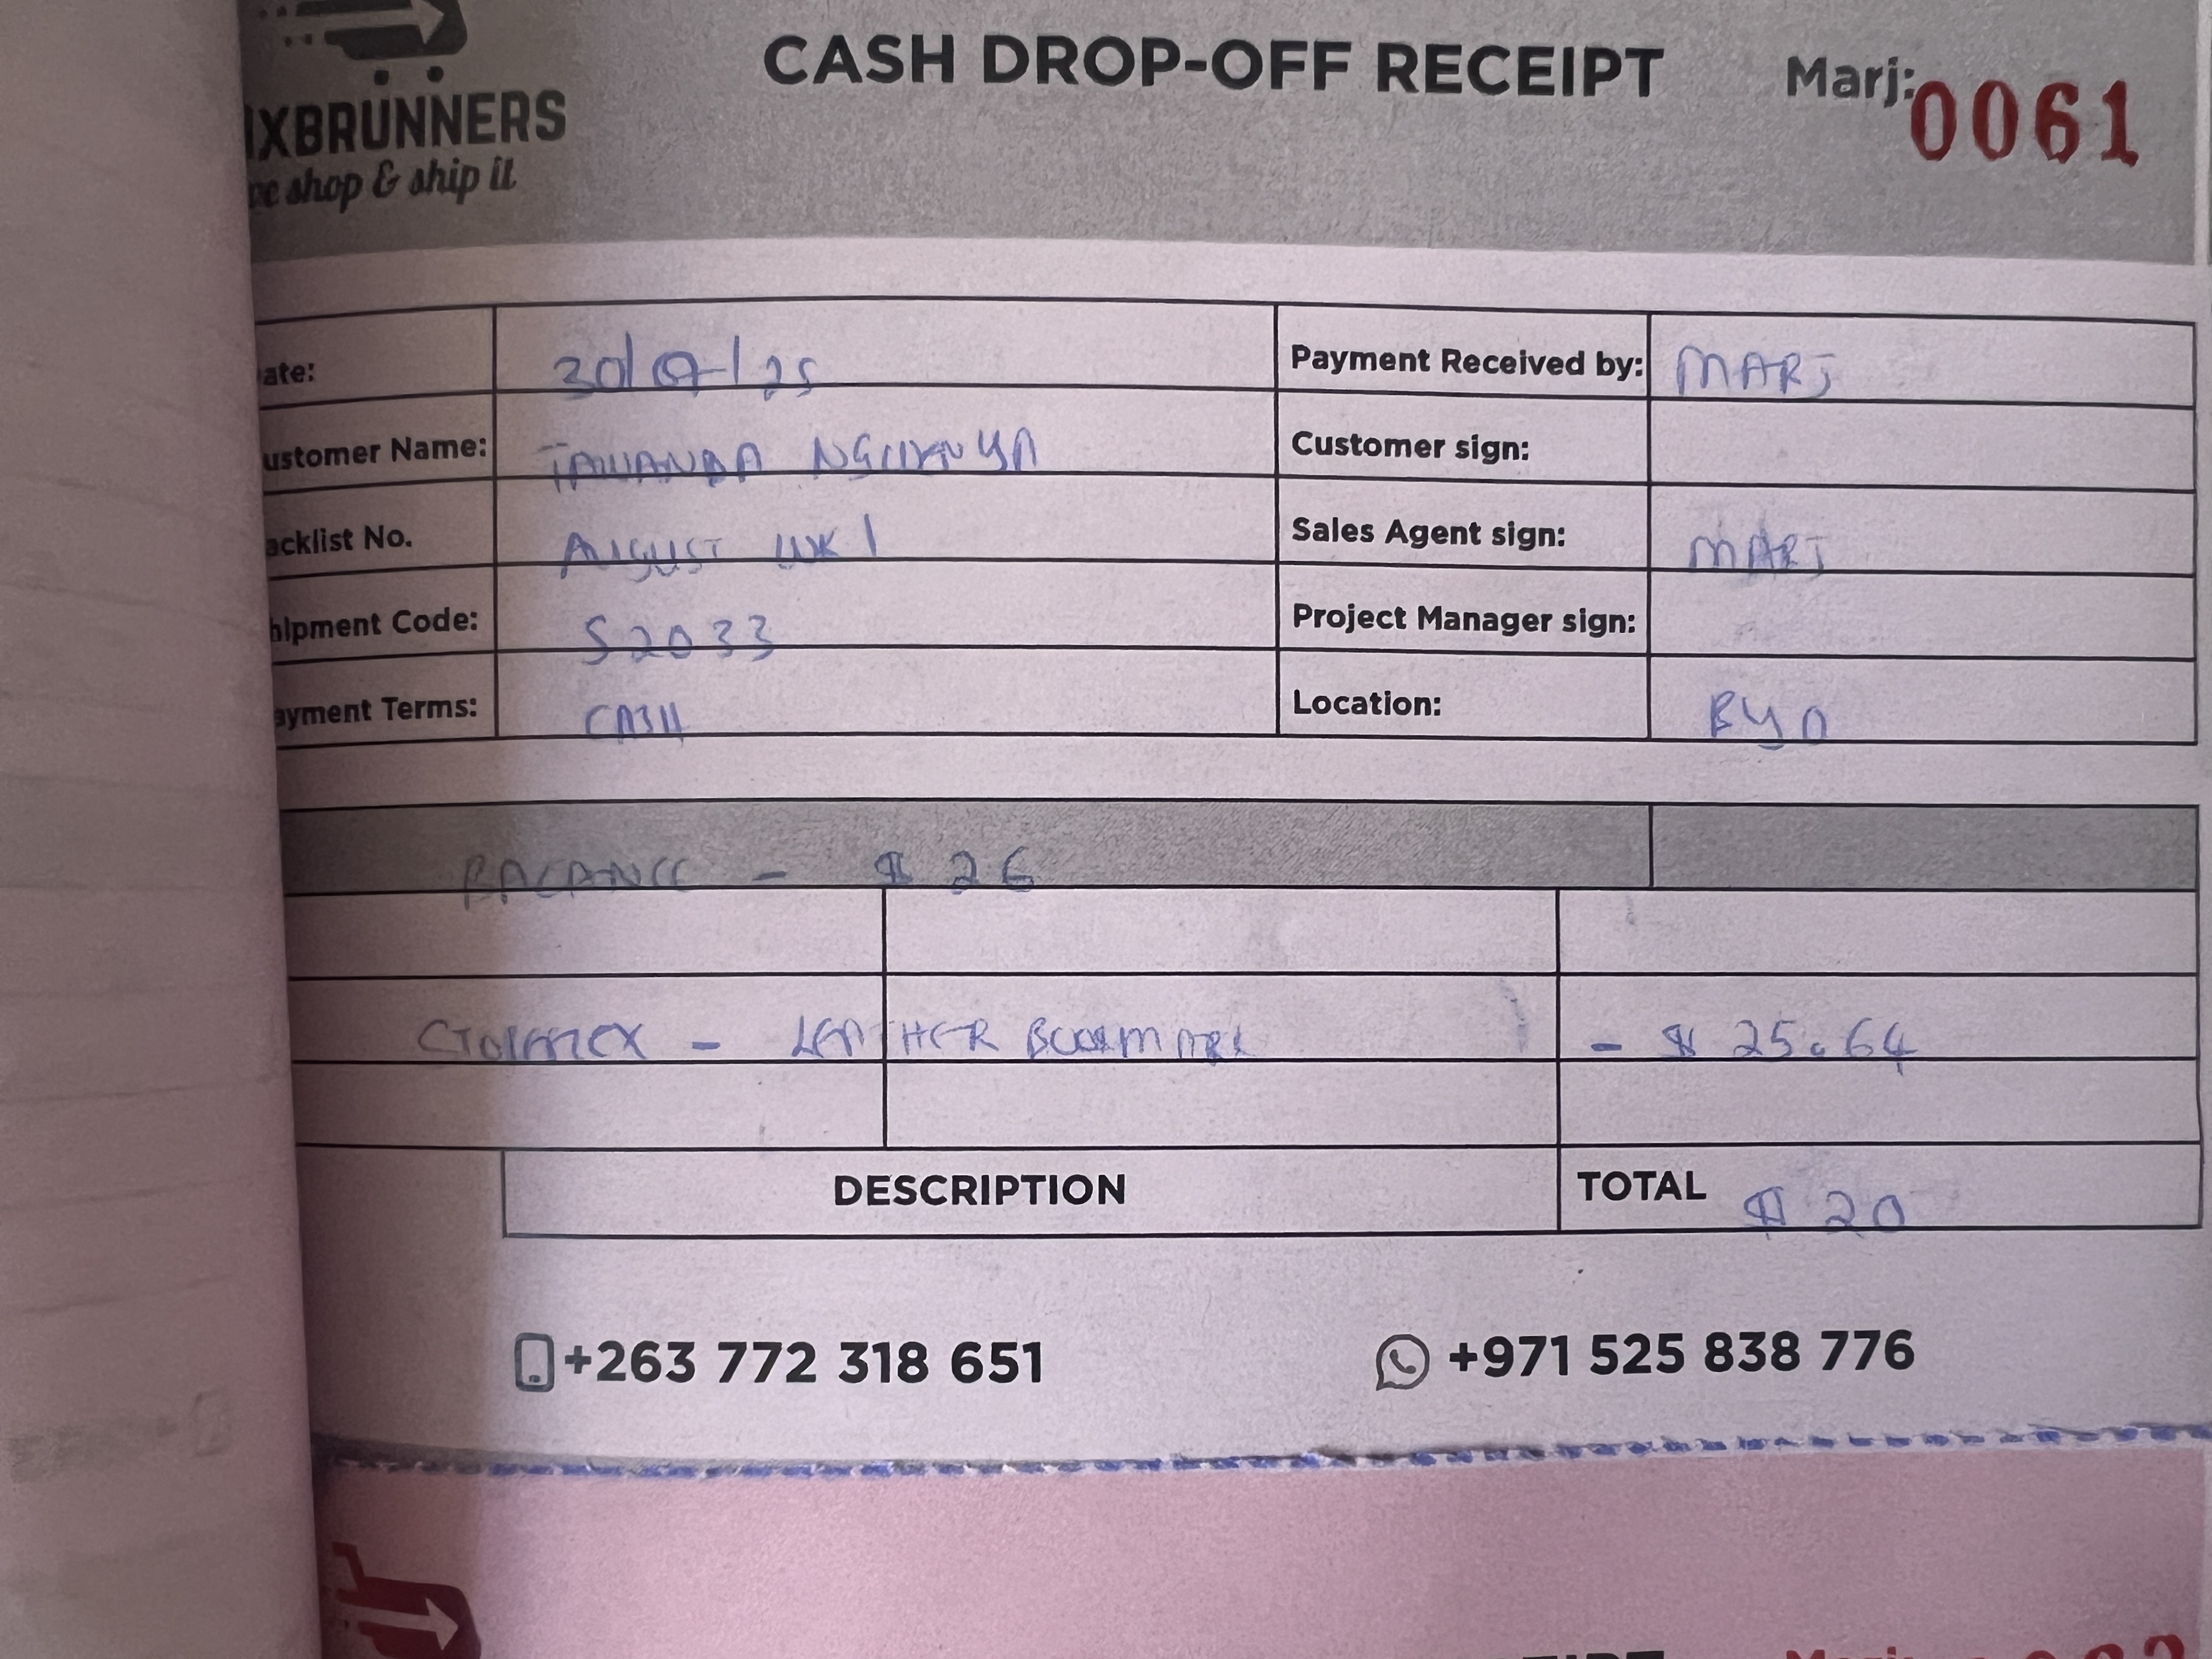 CASH DROP-OFF RECEIPT
Marj: 0061
IXBRUNNERS
we shop & ship it
ate: 30/07/25 Payment Received by: MARJ
ustomer Name: TAWANDA NGWENYA Customer sign:
acklist No. AUGUST WK 1 Sales Agent sign: MARJ
hipment Code: S2033 Project Manager sign:
ayment Terms: CASH Location: BYO
BALANCE - $ 26
- LEATHER BOOKMARK - $ 25.64
DESCRIPTION TOTAL $ 20
+263 772 318 651 +971 525 838 776